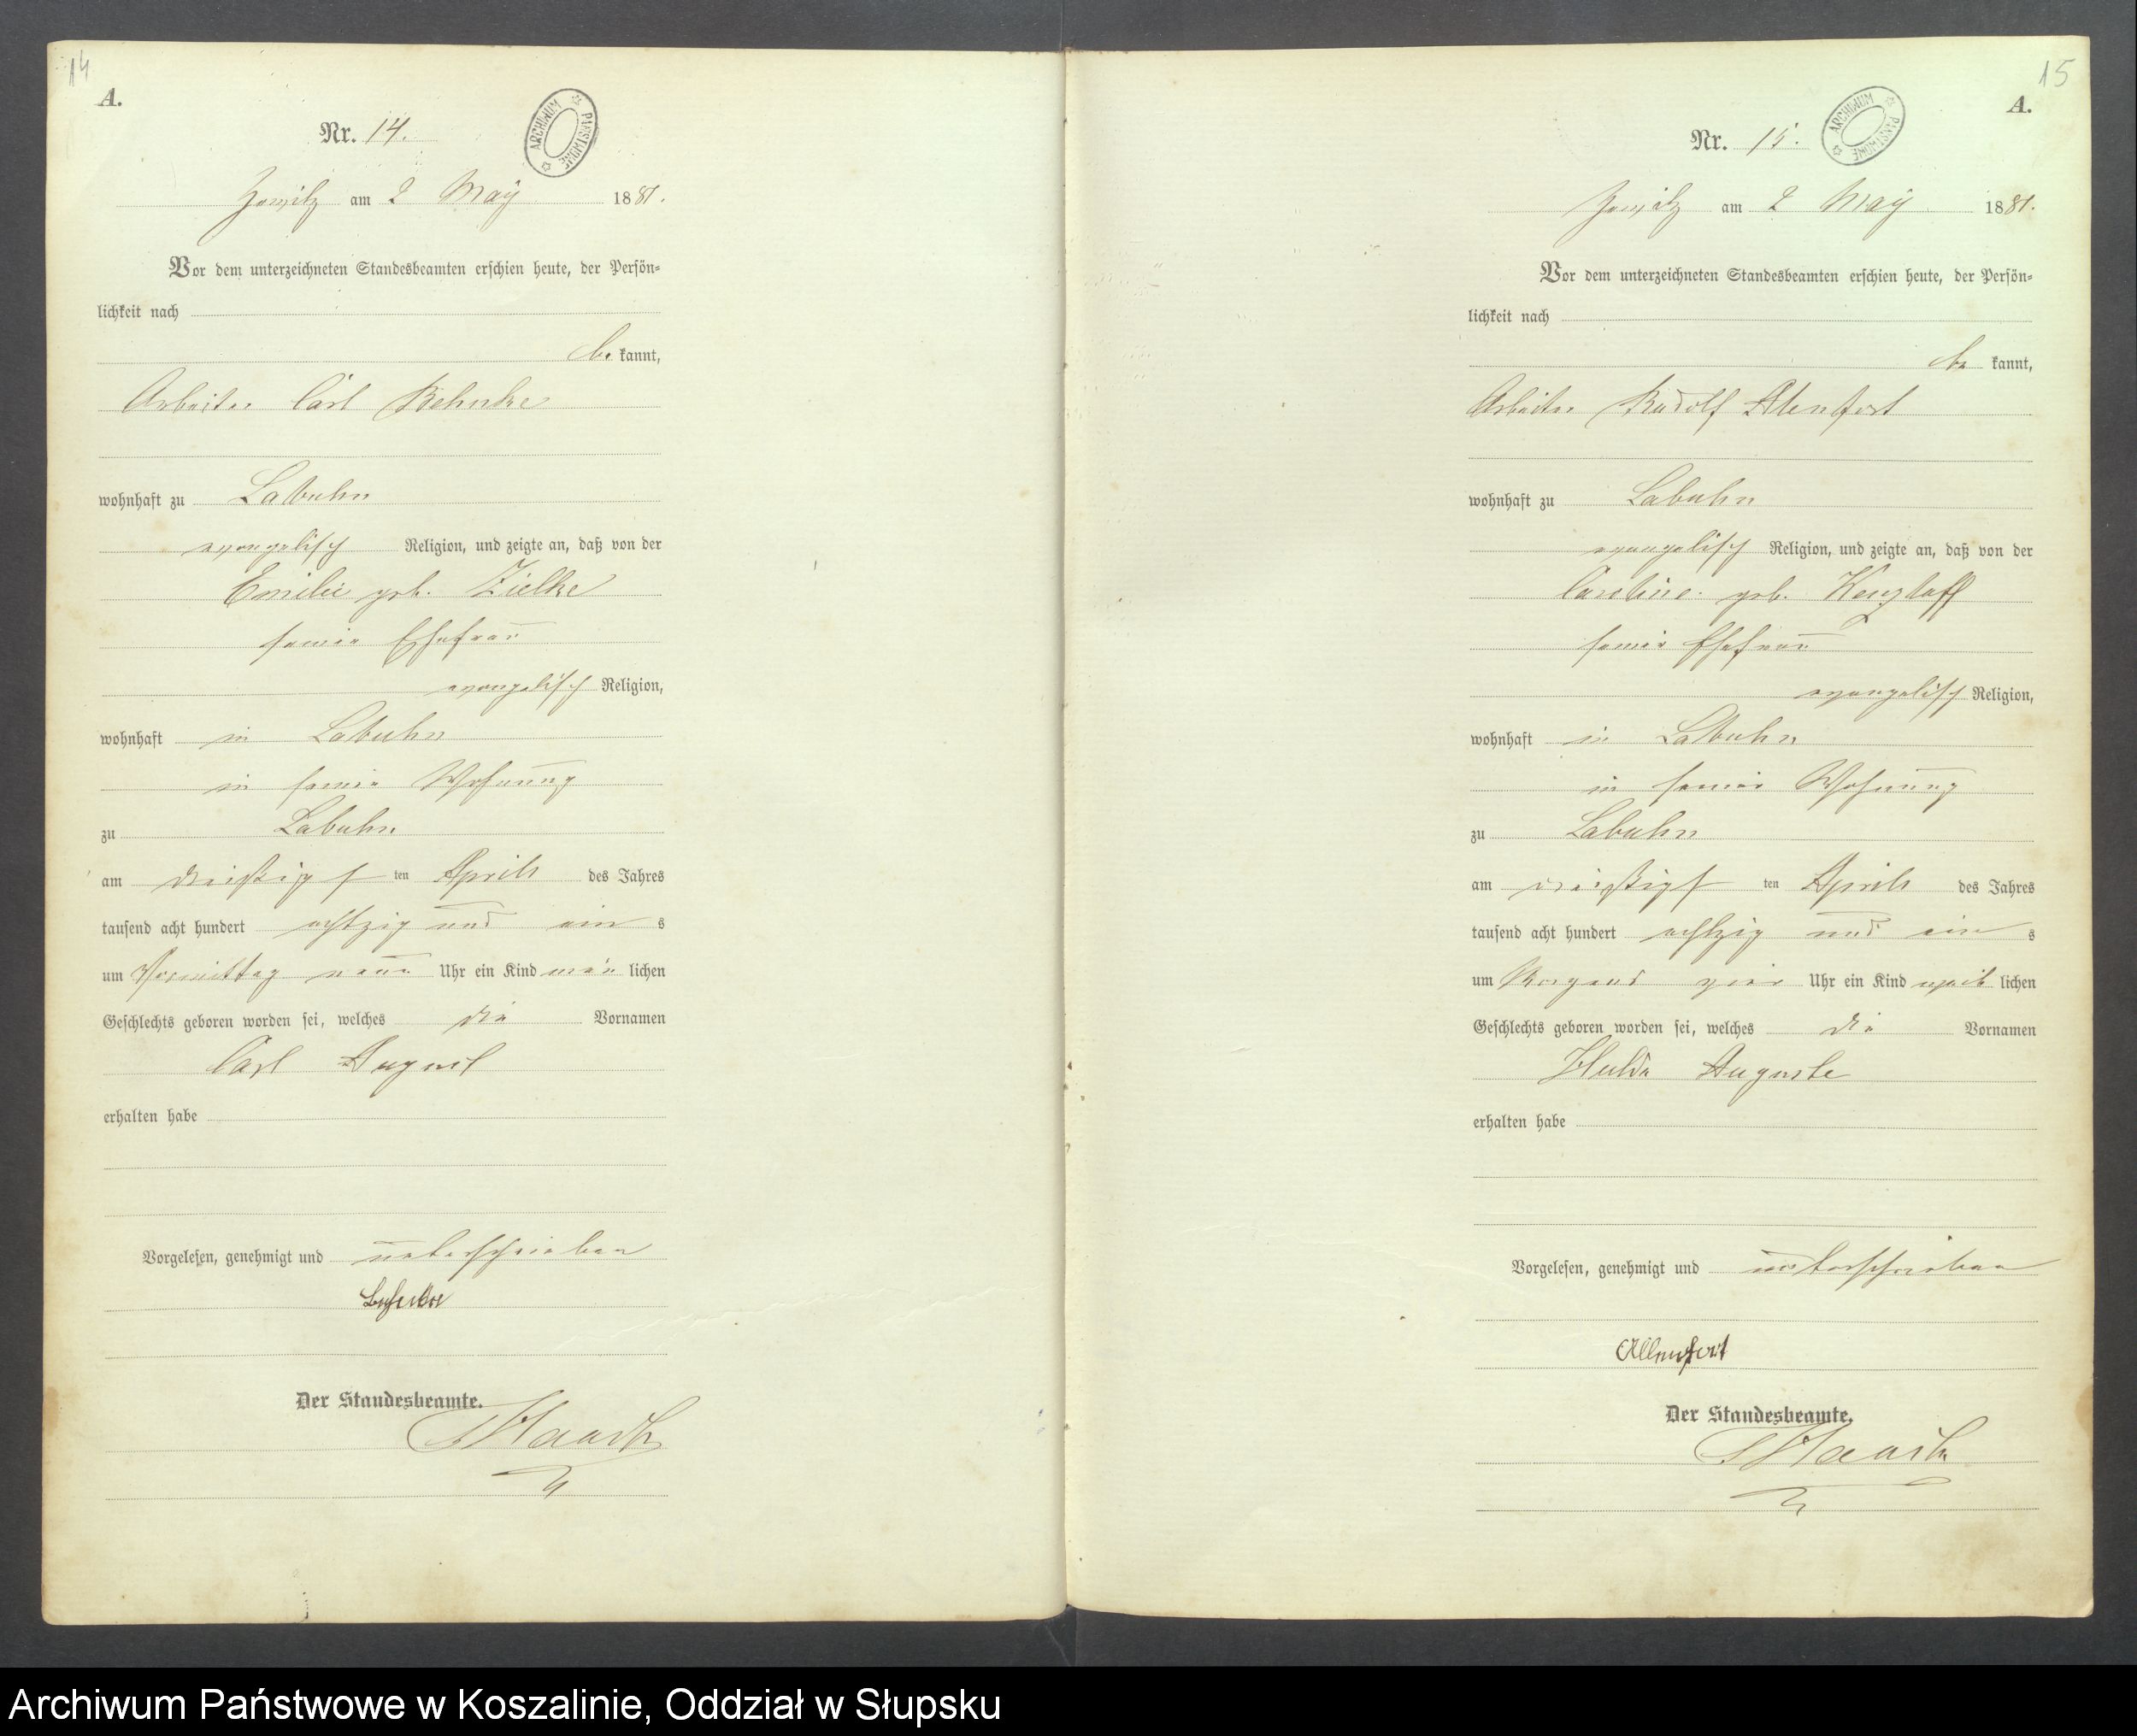 14
A.
Nr. 14.
ARCHIWUM PAŃSTWOWE
Zewitz am 2 May 1881.
Vor dem unterzeichneten Standesbeamten erschien heute, der Persön-
lichkeit nach
be kannt,
Arbeiter Carl Behnke
wohnhaft zu Labuhn
evangelisch Religion, und zeigte an, daß von der
Emilie geb. Zielke
seiner Ehefrau
evangelisch Religion,
wohnhaft in Labuhn
in seiner Wohnung
zu Labuhn
am dreißigs ten Aprils des Jahres
tausend acht hundert achtzig und ein s
um Vormittag neun Uhr ein Kind män lichen
Geschlechts geboren worden sei, welches die Vornamen
Carl August
erhalten habe
Vorgelesen, genehmigt und unterschrieben
Behnke
Der Standesbeamte.
15
A.
Nr. 15.
ARCHIWUM PAŃSTWOWE
Zewitz am 2 May 1881.
Vor dem unterzeichneten Standesbeamten erschien heute, der Persön-
lichkeit nach
be kannt,
Arbeiter Rudolf Alenfort
wohnhaft zu Labuhn
evangelisch Religion, und zeigte an, daß von der
Caroline geb.
seiner Ehefrau
evangelisch Religion,
wohnhaft in Labuhn
in seiner Wohnung
zu Labuhn
am dreißigs ten Aprils des Jahres
tausend acht hundert achtzig und ein s
um Morgens vier Uhr ein Kind weib lichen
Geschlechts geboren worden sei, welches die Vornamen
Hulda Auguste
erhalten habe
Vorgelesen, genehmigt und unterschrieben
Allenfort
Der Standesbeamte.
Archiwum Państwowe w Koszalinie, Oddział w Słupsku